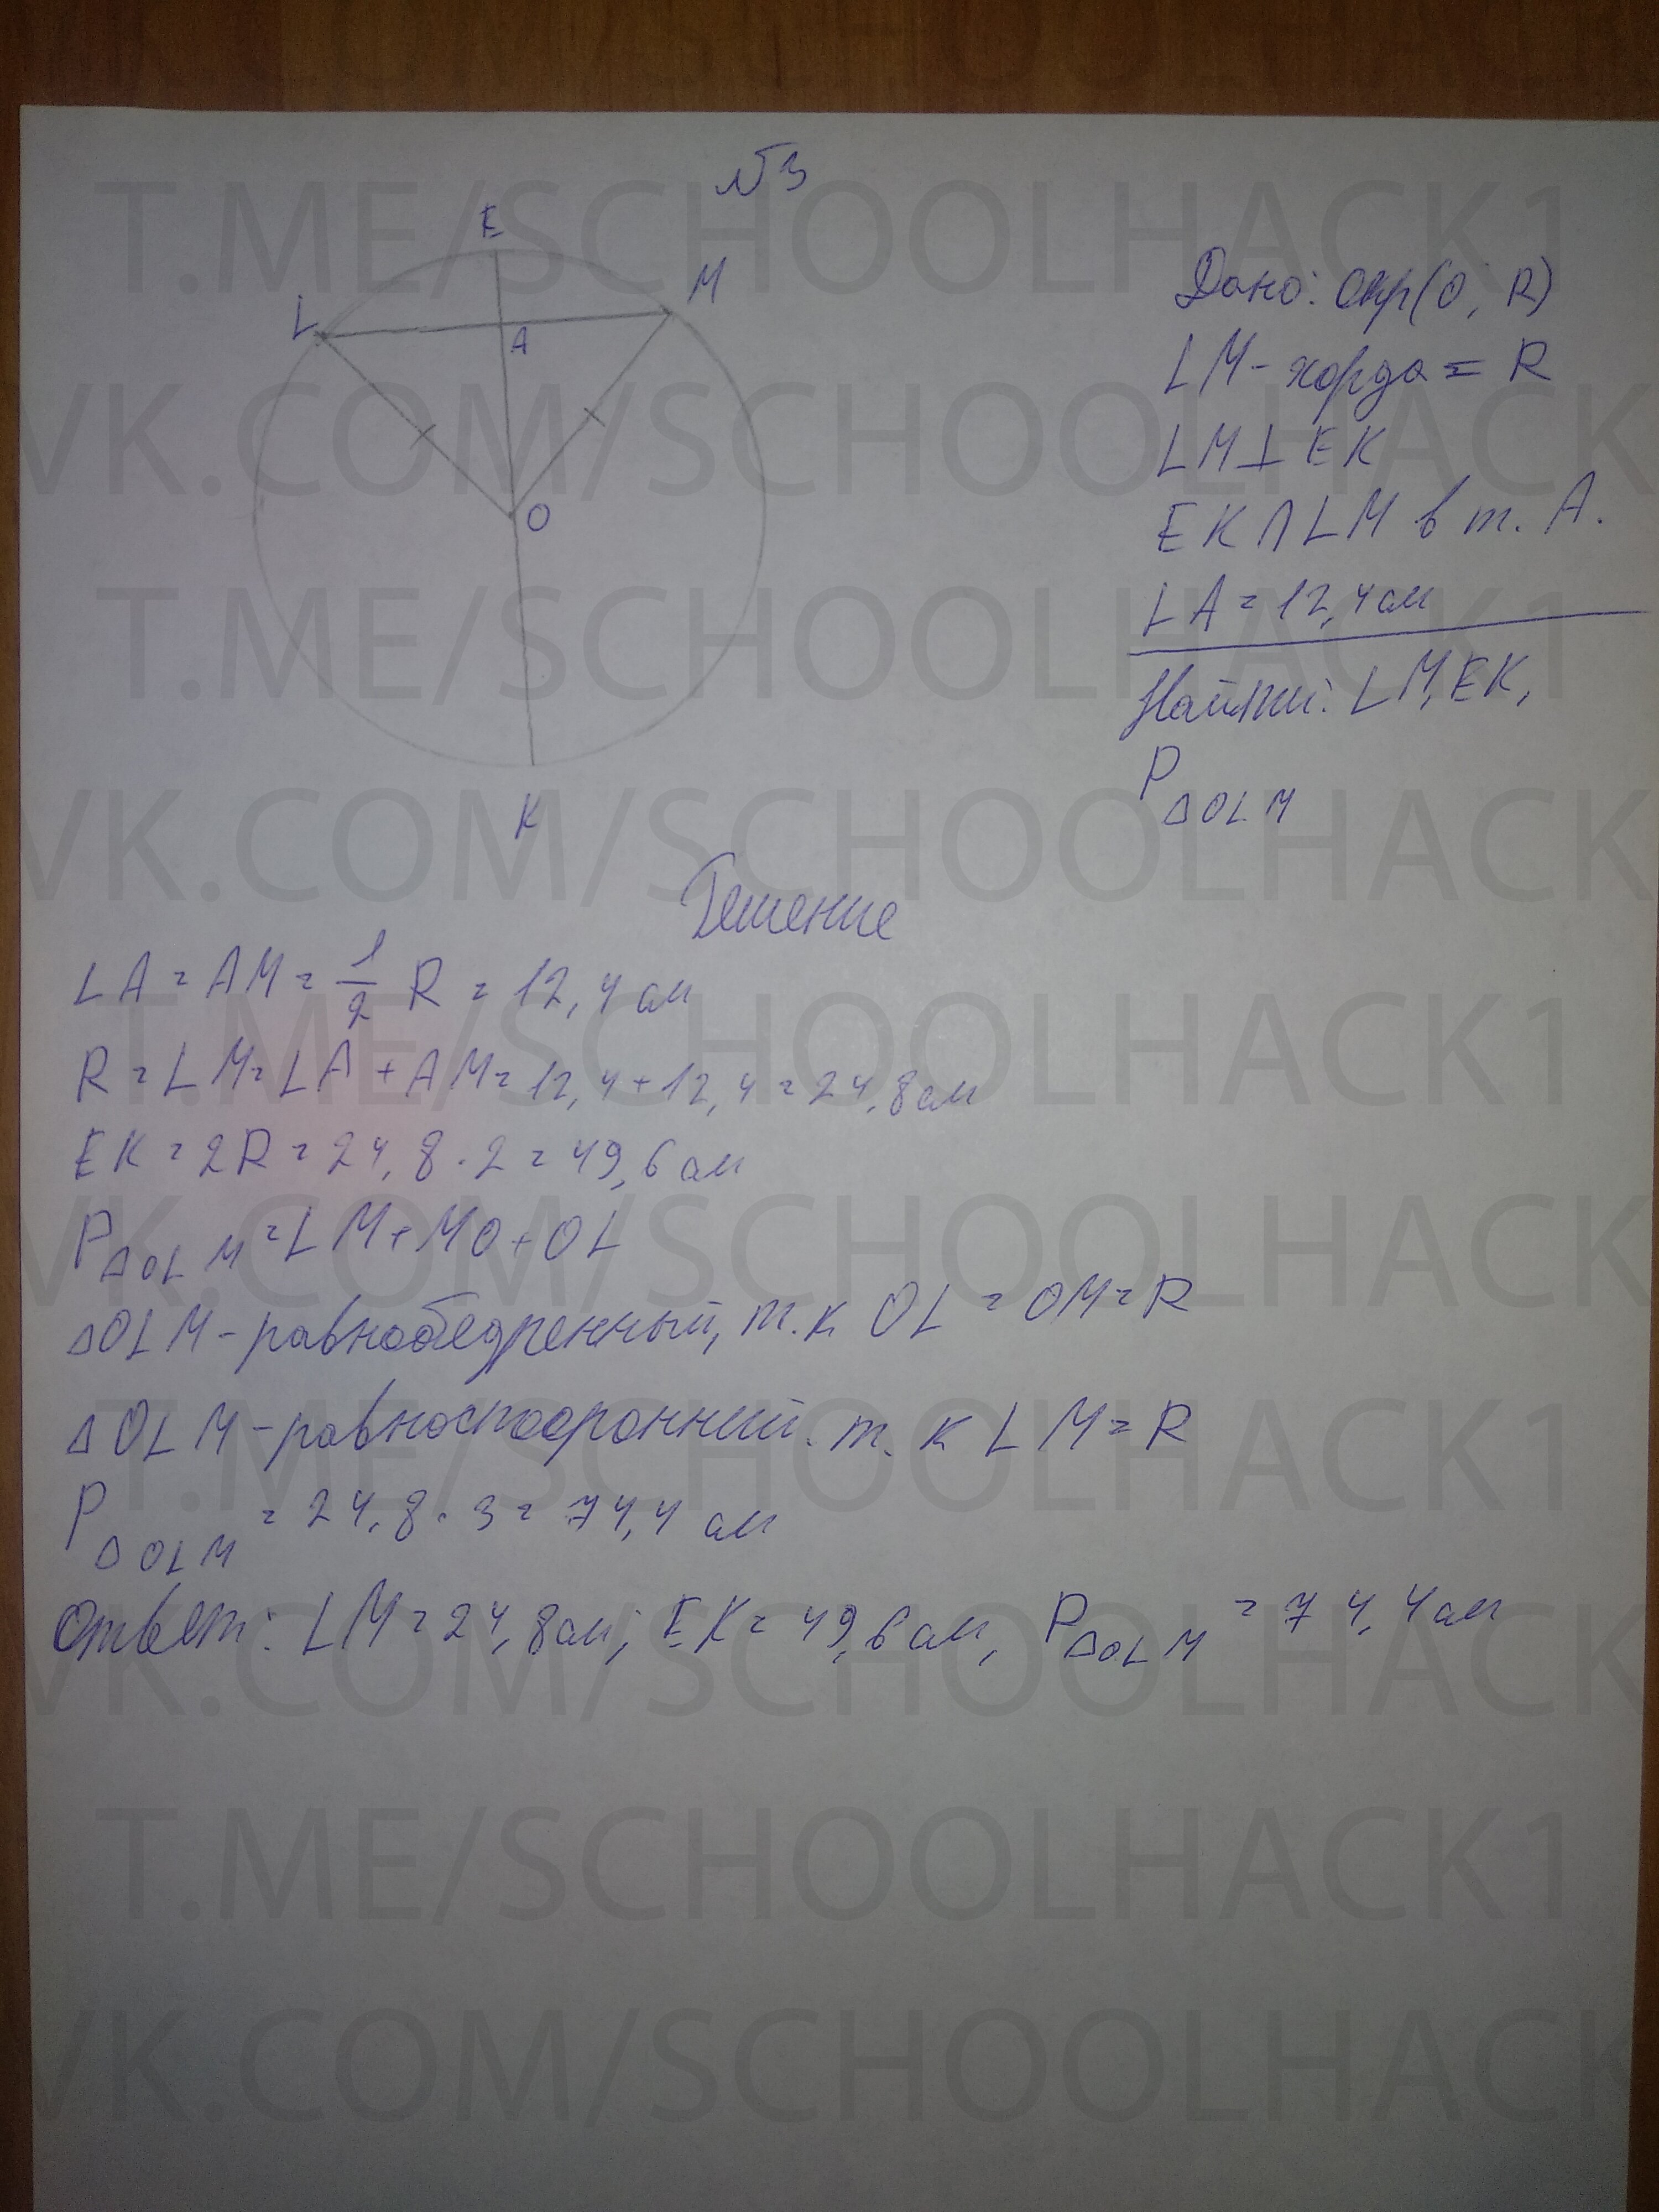 №3
E
L
M
A
O
K
Дано: Окр(O, R)
LM - хорда = R
LM ⊥ EK
EK ∩ LM в т. A.
LA = 12,4 см
Найти: LM, EK,
P △OLM
Решение
LA = AM = 1/2 R = 12,4 см
R = LM = LA + AM = 12,4 + 12,4 = 24,8 см
EK = 2R = 24,8 · 2 = 49,6 см
P △OLM = LM + MO + OL
△OLM - равнобедренный, т.к OL = OM = R
△OLM - равносторонний. т. к LM = R
P △OLM = 24,8 · 3 = 74,4 см
Ответ: LM = 24,8 см; EK = 49,6 см, P △OLM = 74,4 см
T.ME/SCHOOLHACK1
VK.COM/SCHOOLHACK
T.ME/SCHOOLHACK1
VK.COM/SCHOOLHACK
T.ME/SCHOOLHACK1
VK.COM/SCHOOLHACK
T.ME/SCHOOLHACK1
VK.COM/SCHOOLHACK
T.ME/SCHOOLHACK1
VK.COM/SCHOOLHACK